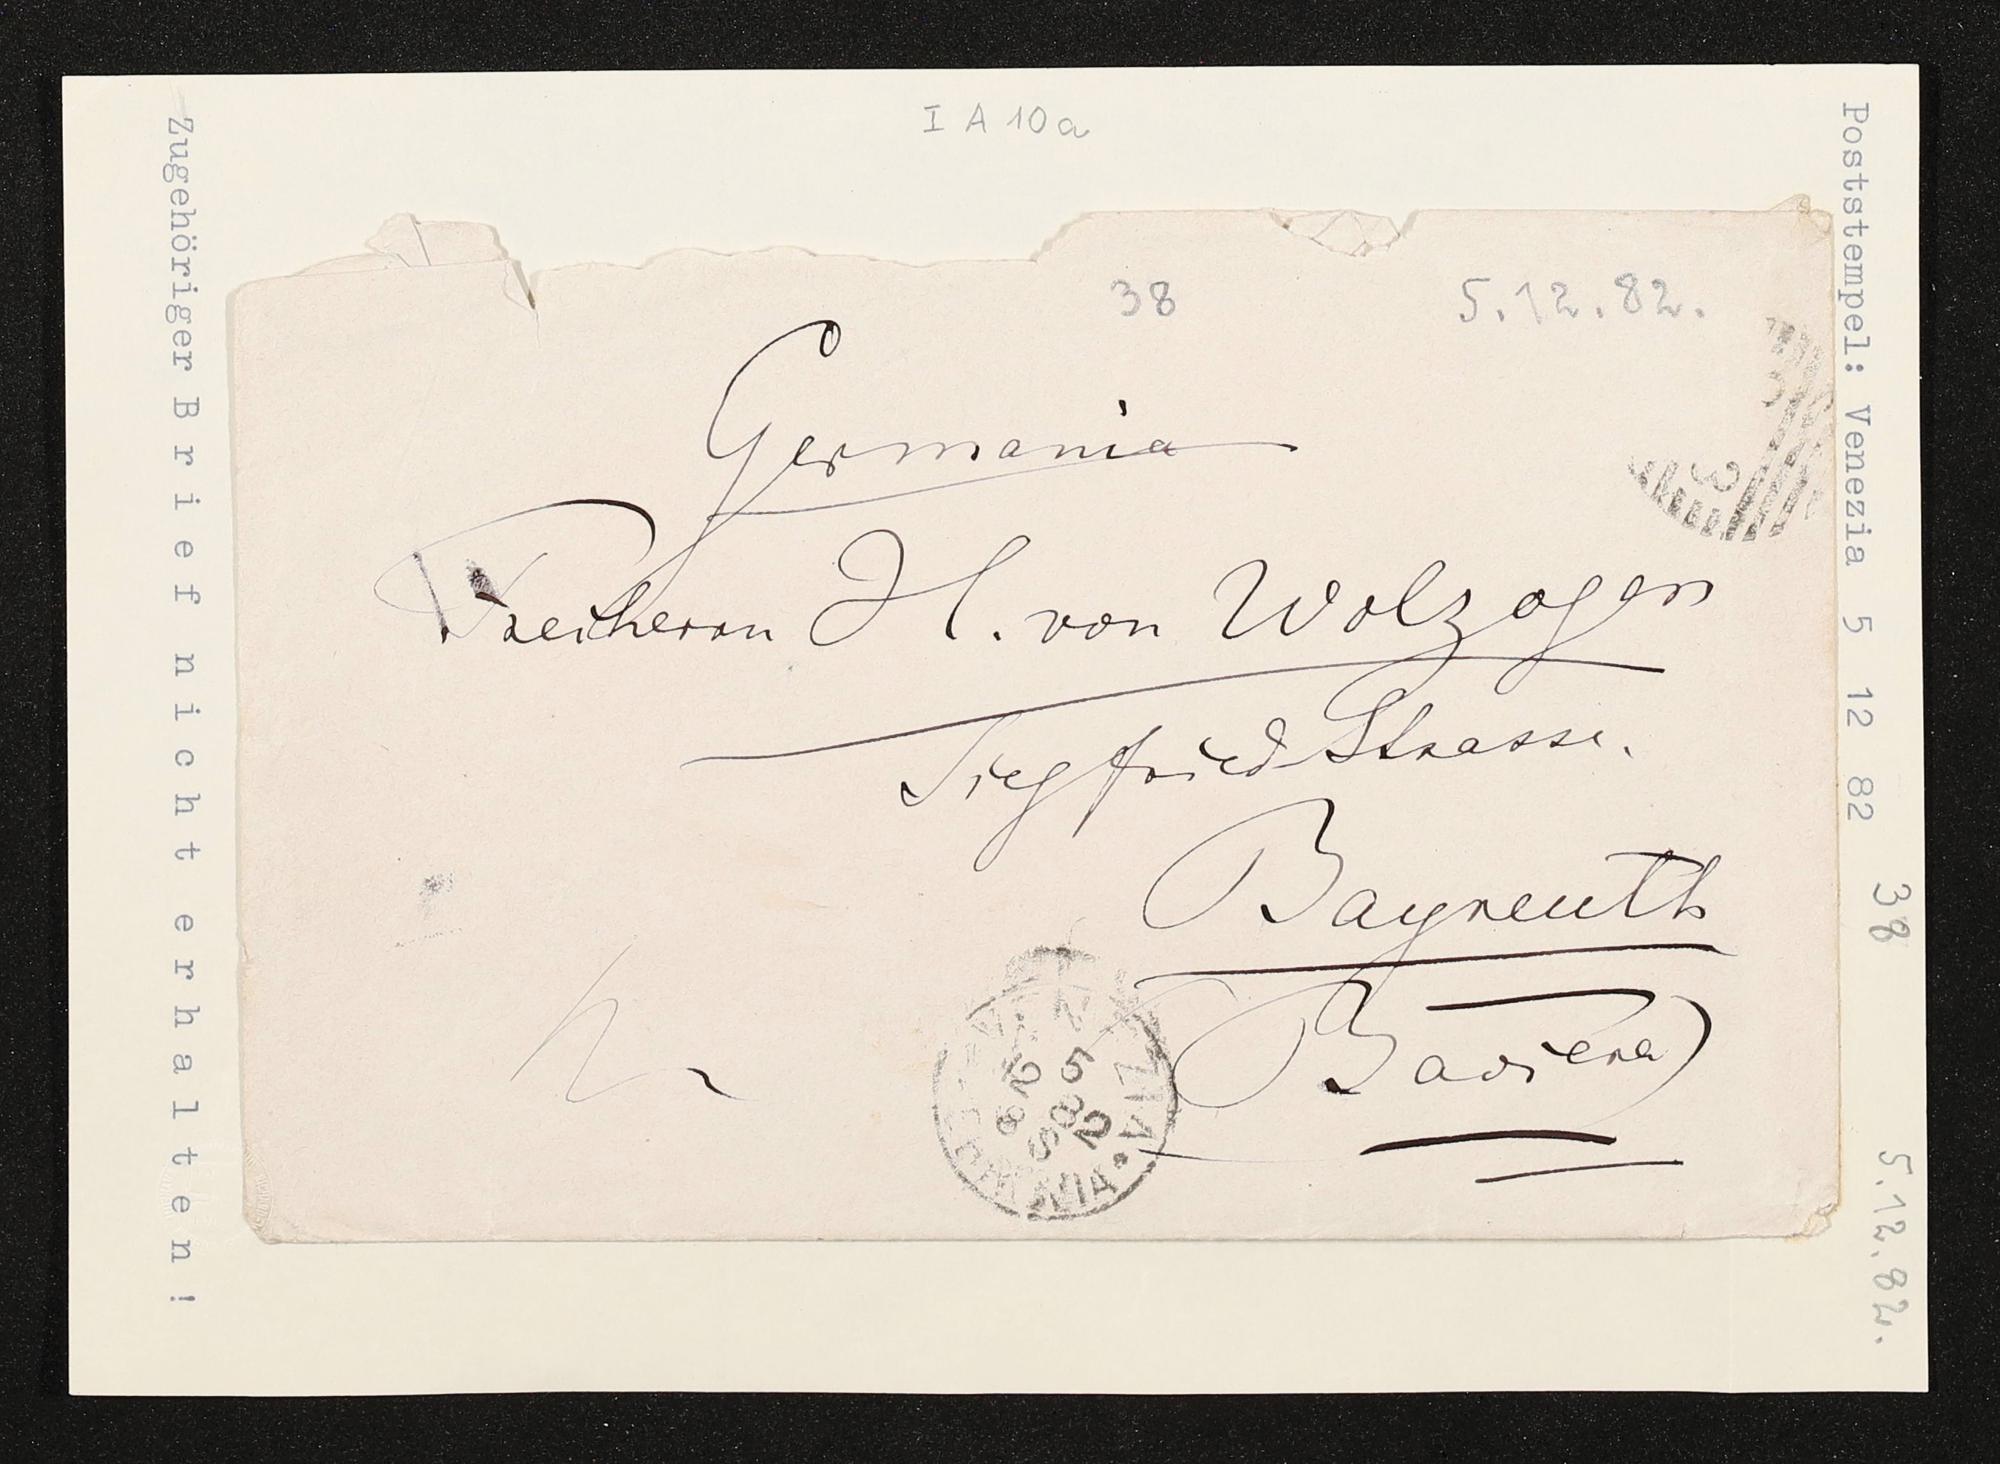 I A 10a
38
5.12.82.
Germania
Freiherrn H. von Wolzogen
Siegfried Strasse.
Bayreuth
Baviera
VENEZIA
5
12
82
8 S
FERROVIA
3
Poststempel: Venezia 5 12 82
38
5.12.82.
Zugehöriger Brief nicht erhalten!